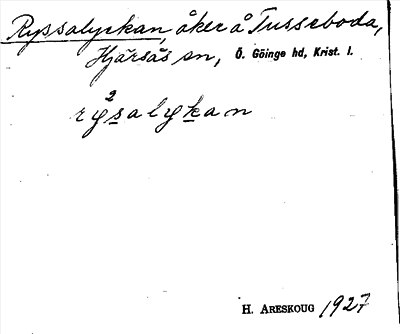 Ryssalyckan, åker å Tusseboda,
Hjärsås sn, Ö. Göinge hd, Krist. l.
rỳ²salykan
H. ARESKOUG 1927